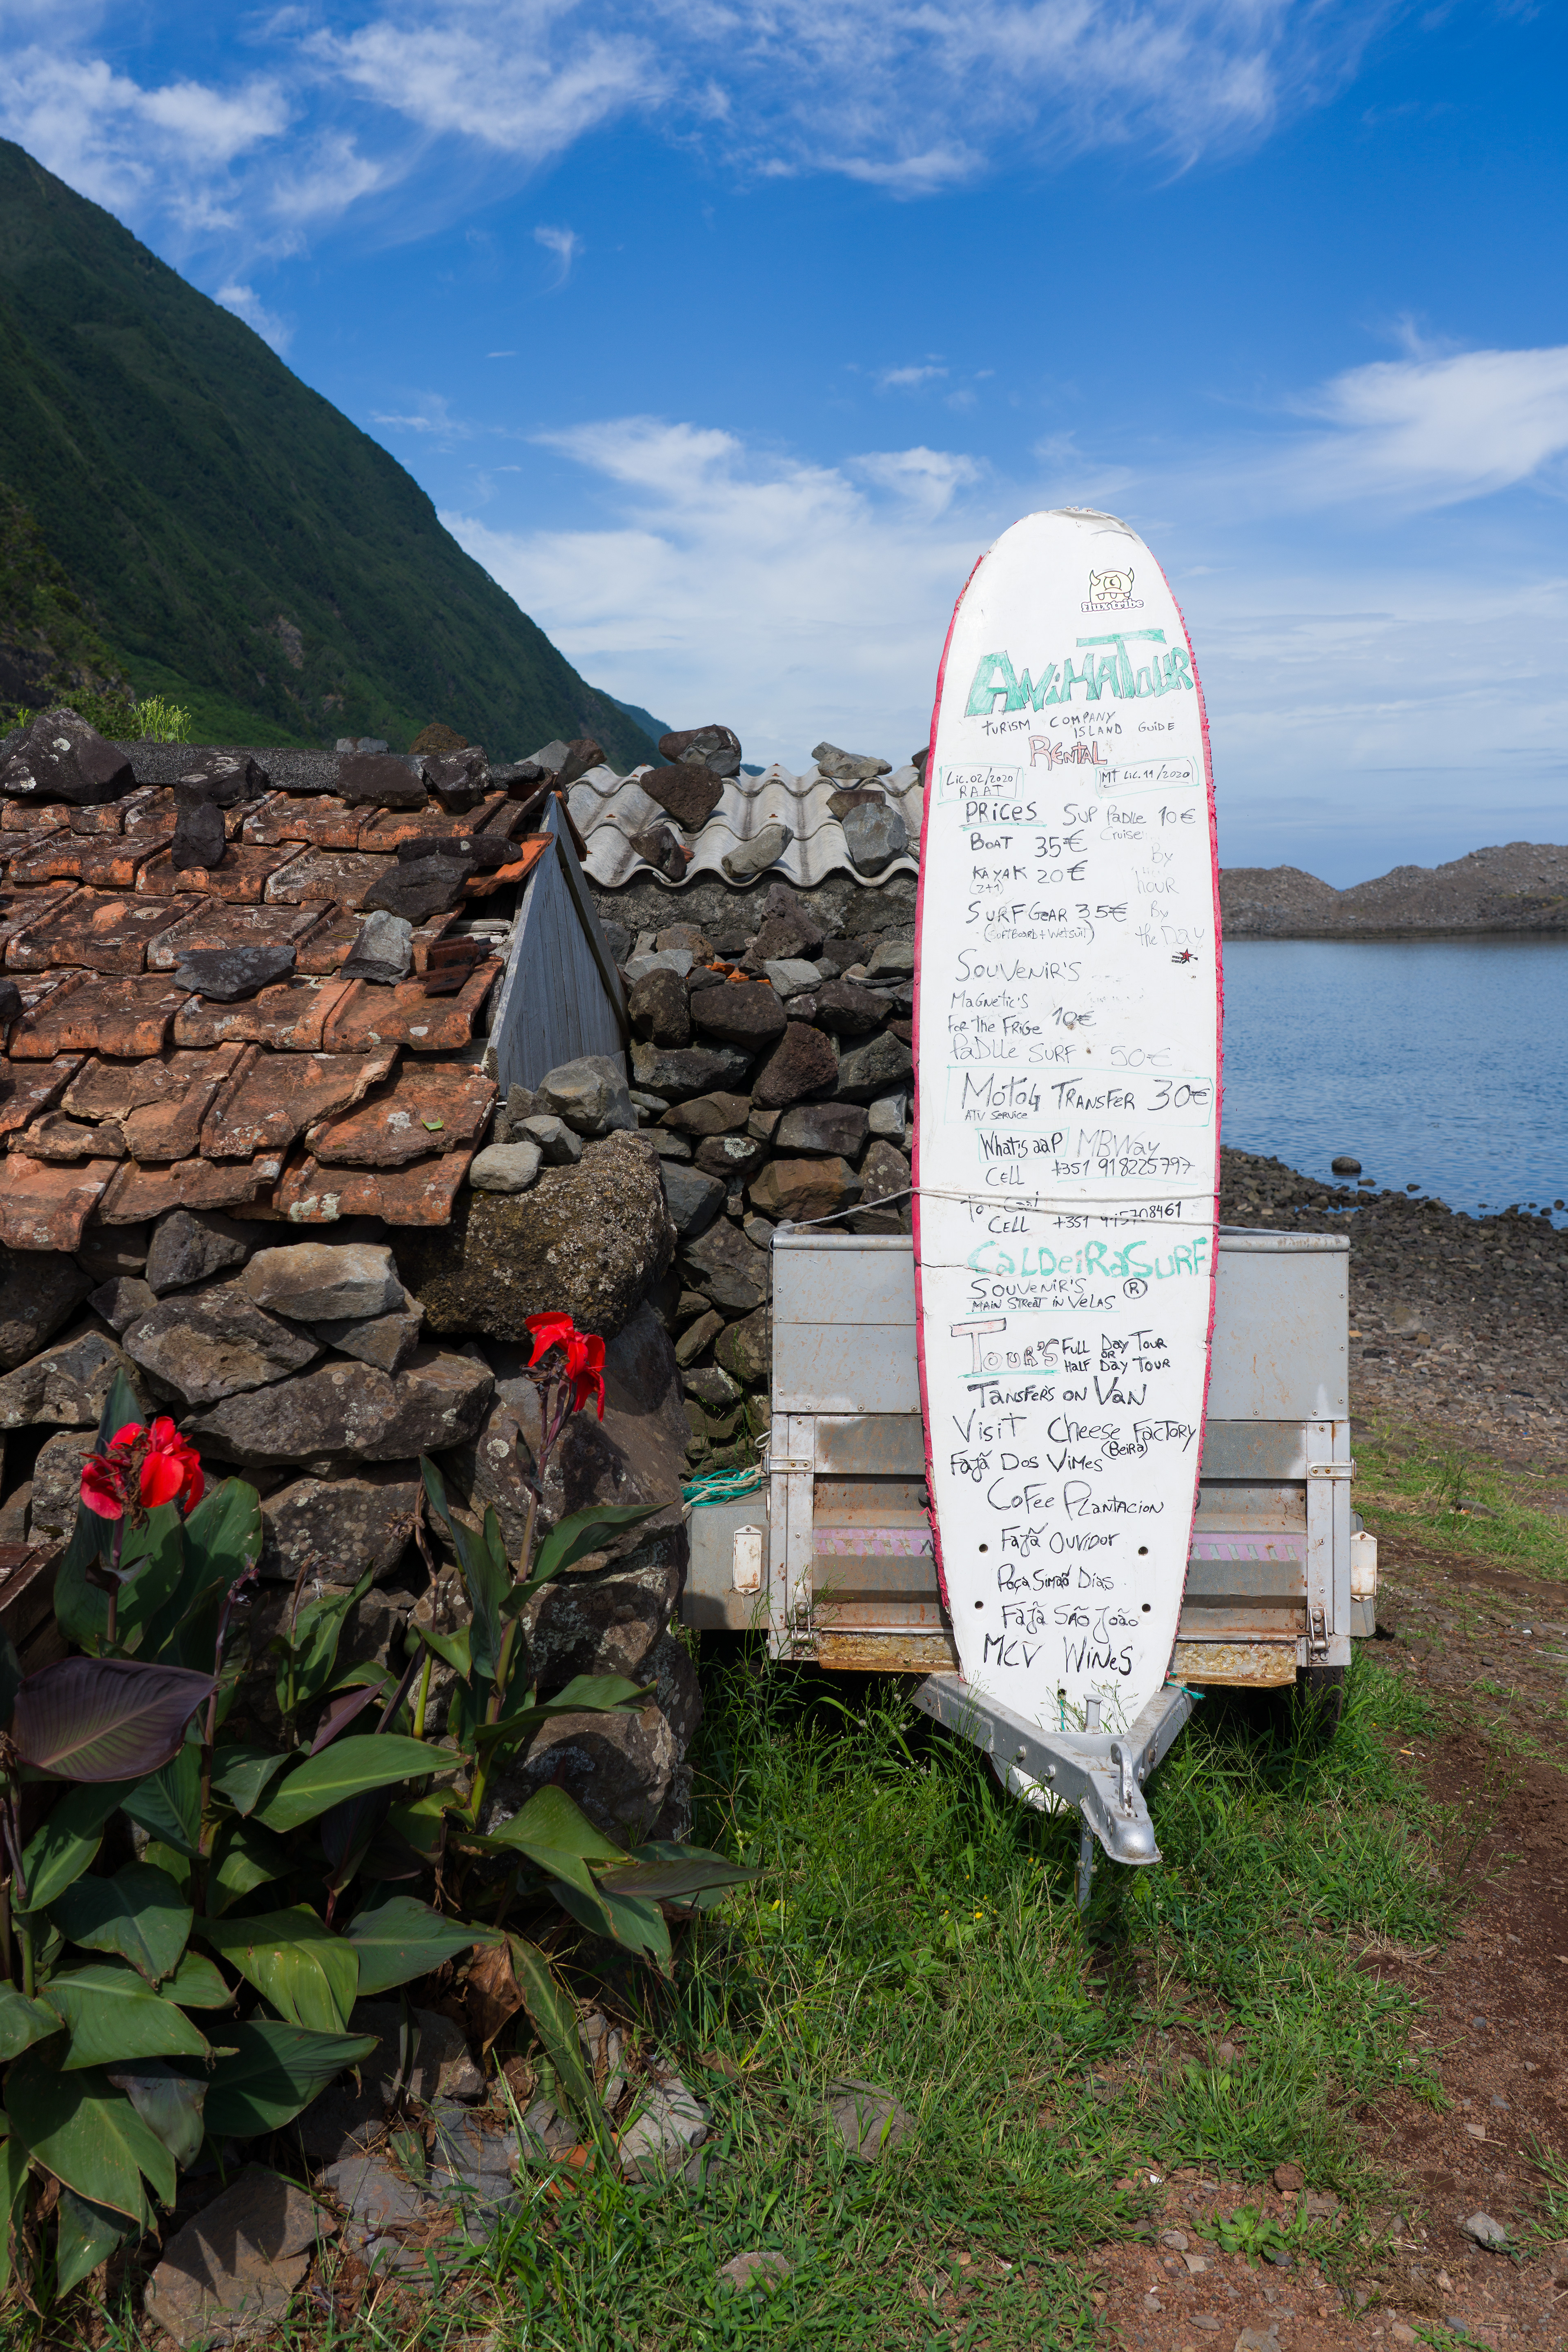 flux tribe
ANiMATOUR
TURISM COMPANY
ISLAND GUIDE
RENTAL
Lic.02/2020
RAAT
MT Lic.11/2020
PRiCES SUP PADLLE 10€
BOAT 35€ Cruise
By
KAYAK 20€
(2+1)
HOUR
SURF GEAR 35€ By
(SurfBoard + Wetsuit) the DAY
SOUVENIR'S
MAGNETIC'S
FOR THE FRIGE 10€
PADLLE SURF 50€
MOTO4 TRANSFER 30€
ATV SERVICE
What's aaP MBWay
CELL +351 918225797
CELL +351 915708461
CALDEiRASURF
SOUVENIR'S ®
MAIN STREET IN VELAS
TOUR'S FULL DAY TOUR
OR
HALF DAY TOUR
TANSFERS ON VAN
VISIT CHEESE FACTORY
(BEIRA)
FAJÃ DOS VIMES
COFEE PLANTACION
FAJÃ OUVIDOR
POÇA SIMÃO DIAS
FAJÃ SÃO JOÃO
MCV WINES